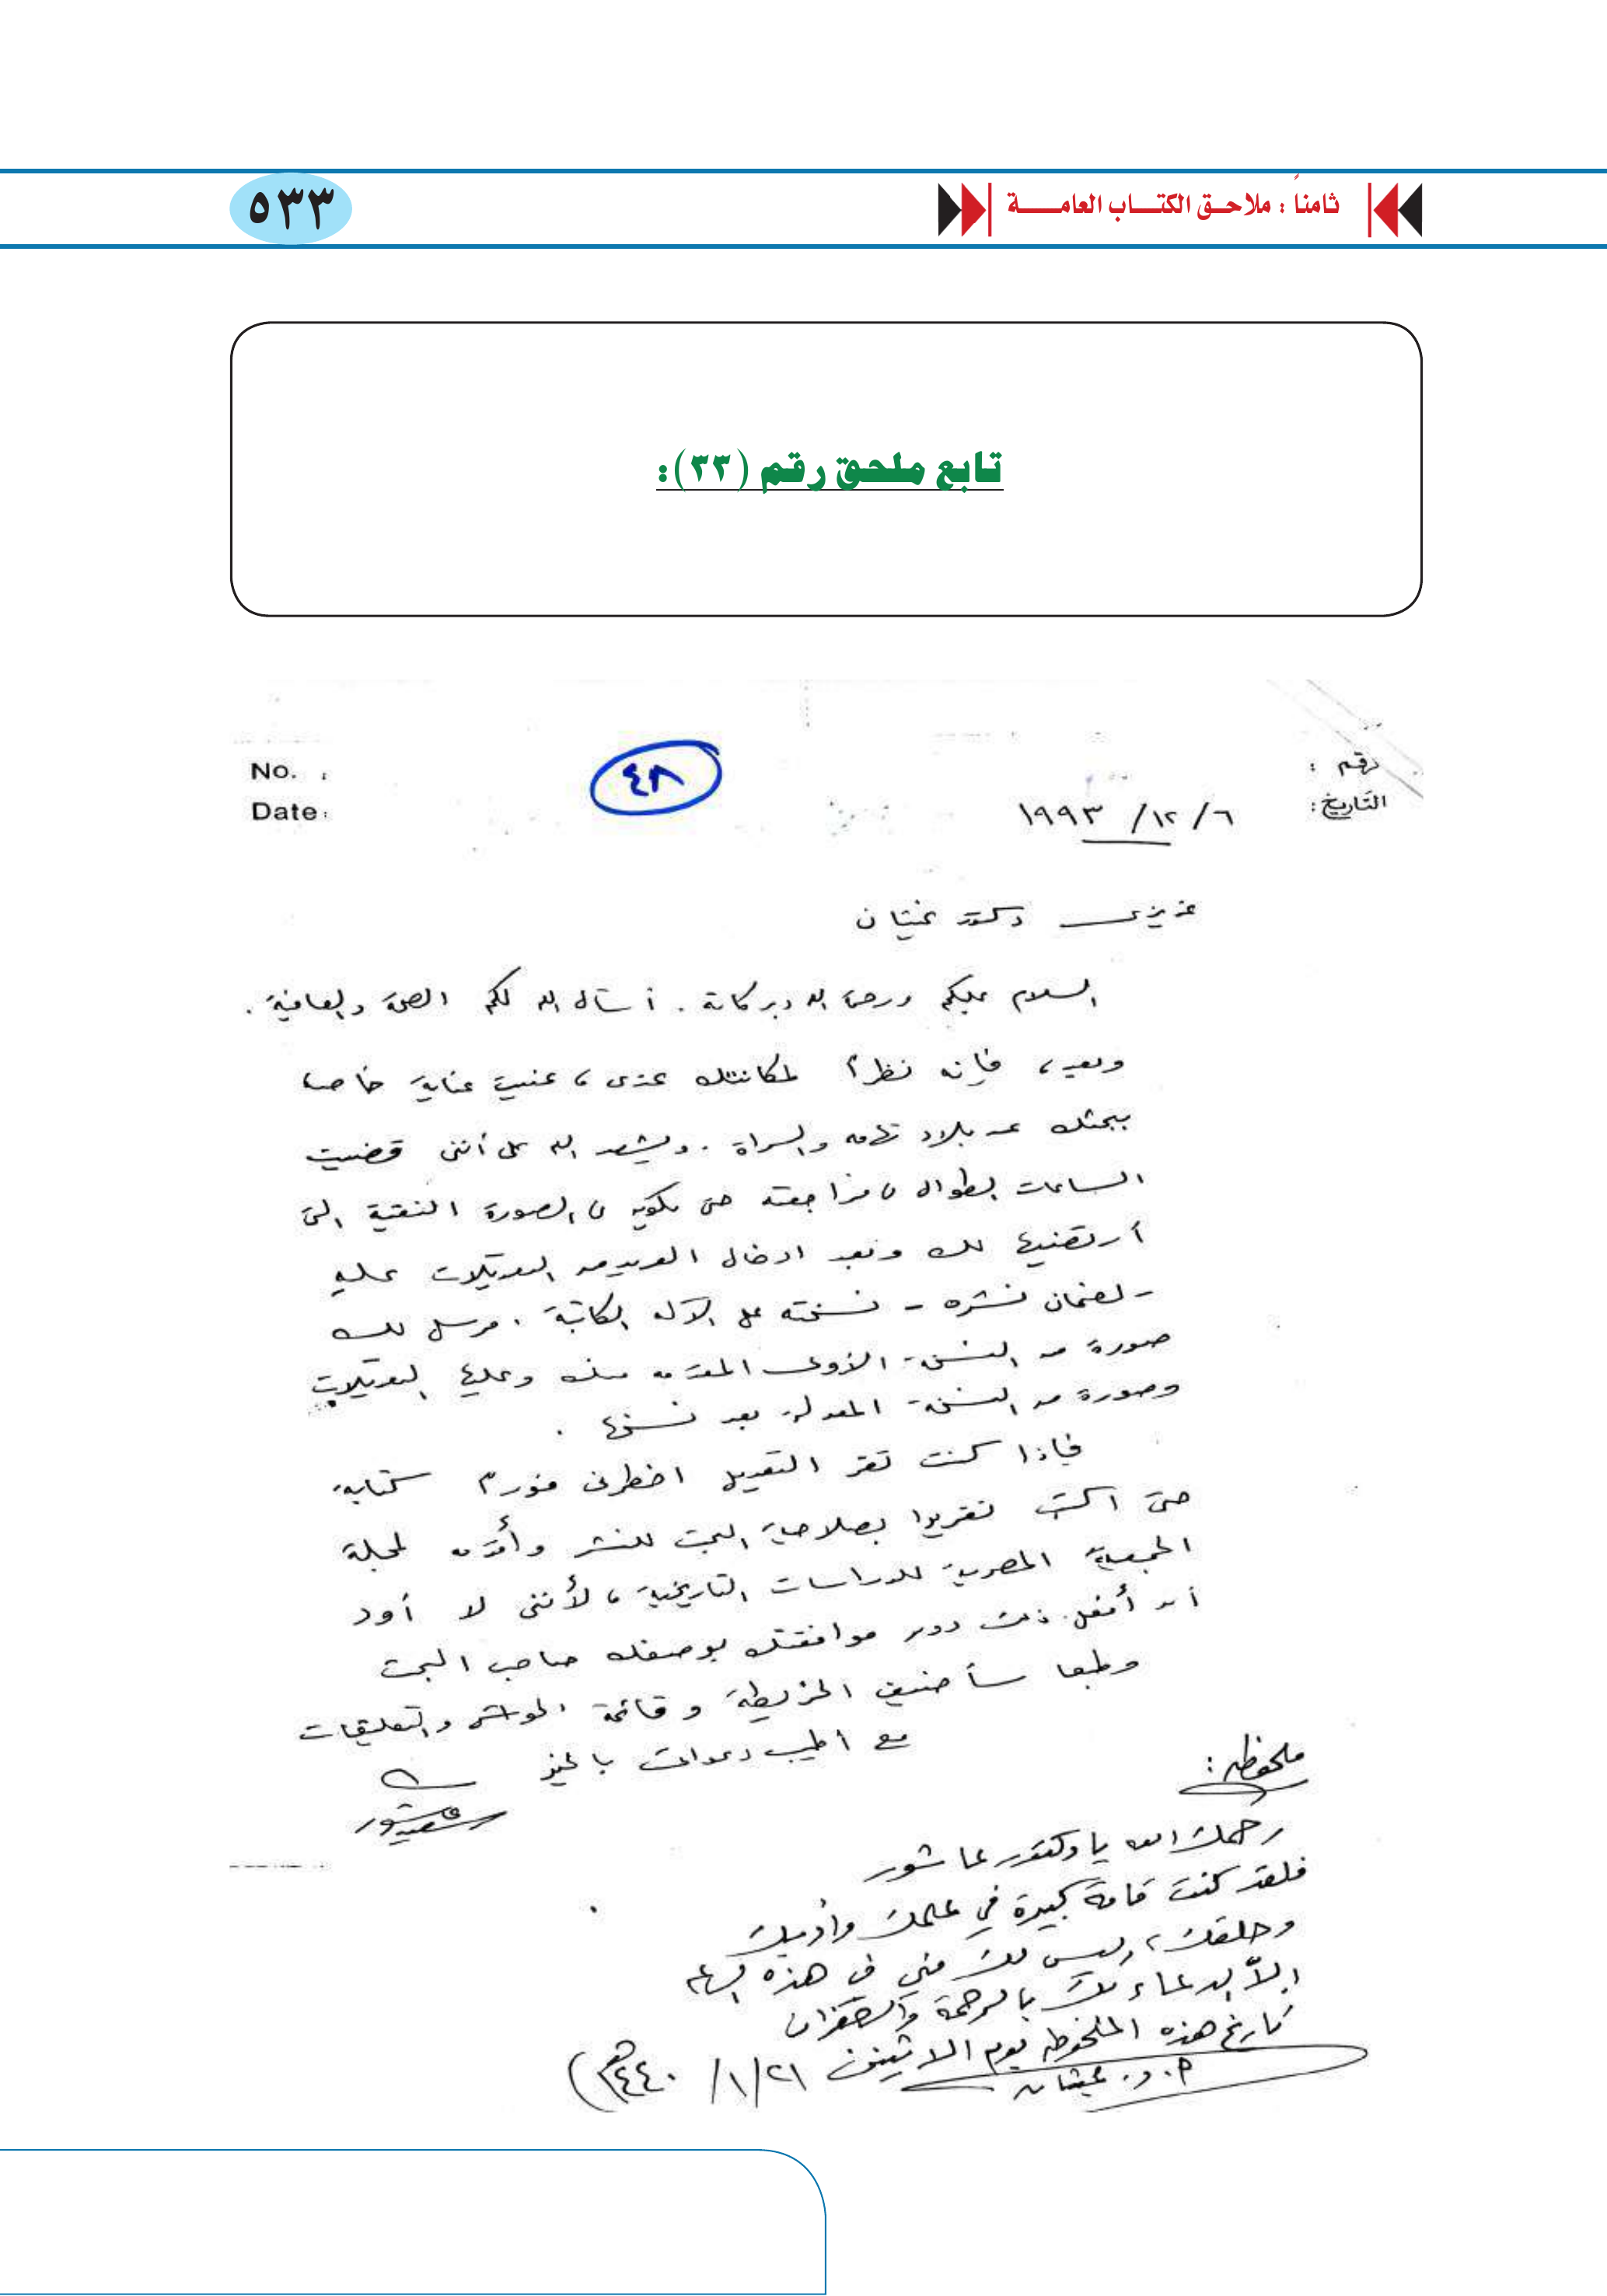 ثامناً : ملاحـق الكتـــاب العامـــــة
٥٣٣
تابع ملحق رقم (٣٣):
No. :
رقم :
٤٨
Date:
التاريخ:
٦ /١٢/ ١٩٩٣
عزيزى دكتور غيثان
السلام عليكم ورحمة الله وبركاته . أسأل الله لكم الصحة والعافية .
وبعد ، فإنه نظراً لمكانتك عندى ، عنيت عناية خاصة
ببحثك عن بلاد تهامه والسراة . ويشهد الله على أننى قضيت
الساعات الطوال فى مراجعته حتى يكون فى الصورة النقية التى
أرتضيها لك وبعد ادخال العديد من التعديلات عليه
- لضمان نشره - نسخته على الآلة الكاتبة . مرسل لك
صورة من النسخة الأولى المقدمه منك وعليها التعديلات
وصورة من النسخة المعدلة بعد نسخها .
فإذا كنت تقر التعديل اخطرنى فورا كتابة
حتى اكتب تقريرا بصلاحية البحث للنشر وأقدمه لمجلة
الجمعية المصرية للدراسات التاريخية ، لأننى لا أود
أن أفعل ذلك دون موافقتك بوصفك صاحب البحث
وطبعا سأضيف الخريطة وقائمة الحواشى والتعليقات
مع أطيب دعواتى بالخير
سعيد عاشور
ملحوظه :
رحمك الله يا دكتور عاشور
فلقد كنت قامة كبيرة في علمك وأدبك
وخلقك ، وليس لك مني في هذه الساعه
إلاّ الدعاء لك بالرحمة والغفران
تاريخ هذه الملحوظه يوم الاثنين ٢١/١/ ١٤٤٠هـ)
أ. د. غيثان